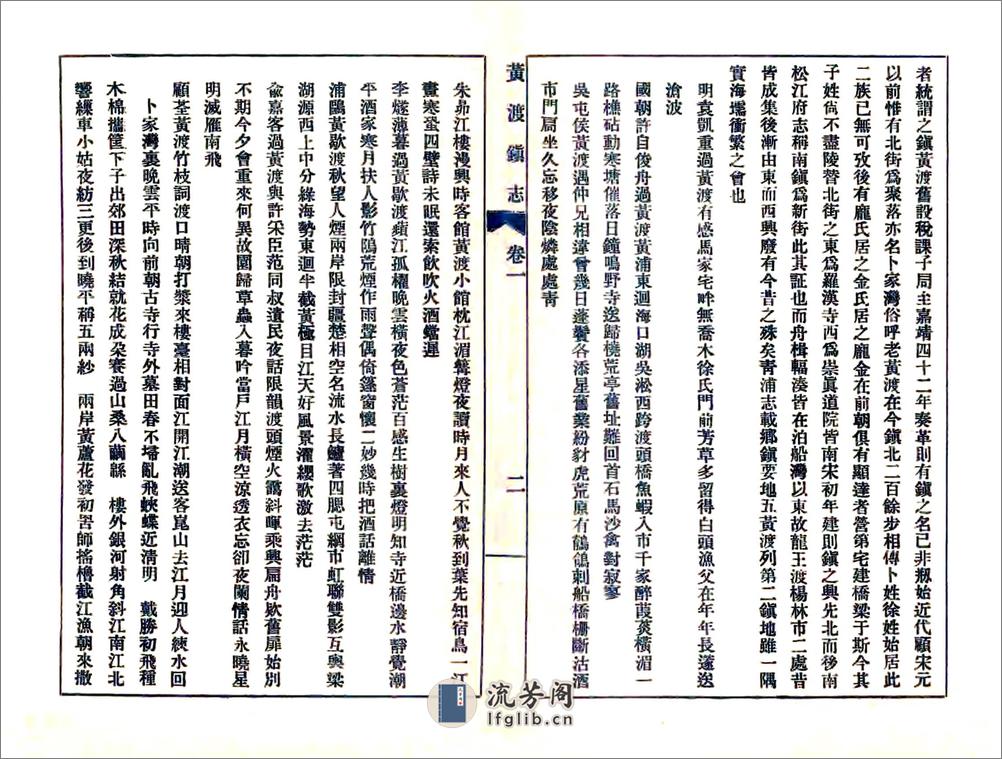 者統謂之鎮黃渡舊設稅課子局至嘉靖四十二年奏革則有鎮之名已非剏始近代顧宋元
以前惟有北街爲聚落亦名卜家灣俗呼老黃渡在今鎮北二百餘步相傳卜姓徐姓始居此
二族已無可攷後有龐氏居之金氏居之龐金在前朝俱有顯達者營第宅建橋梁于斯今其
子姓尙不盡陵替北街之東爲羅漢寺西爲崇眞道院皆南宋初年建則鎮之興先北而後南
松江府志稱南鎮爲新街此其証也而舟楫輻湊皆在泊船灣以東故龍王渡楊林市二處昔
皆成集後漸由東而西興廢有今昔之殊矣靑浦志載鄉鎮要地五黃渡列第二鎮地雖一隅
實海壖衝繁之會也
明袁凱重過黃渡有感馬家宅畔無喬木徐氏門前芳草多留得白頭漁父在年年長遶送
滄波
國朝許自俊舟過黃渡黃浦東迴海口湖吳淞西跨渡頭橋魚蝦入市千家醉葭菼橫湄一
路樵砧動寒塘催落日鐘鳴野寺送歸橈荒亭舊址難回首石馬沙禽對寂寥
吳屯侯黃渡遇仲兄相違曾幾日蓬鬢各添星舊業紛豺虎荒原有鶺鴒刺船橋柵斷沽酒
市門扃坐久忘移夜陰燐處處靑
黃渡鎮志
卷一
二
朱昂江樓漫興時客館黃渡小館枕江湄篝燈夜讀時月來人不覺秋到葉先知宿鳥一江
畫寒蛩四壁詩未眠還索飮吹火酒鐺遲
李燧薄暮過黃歇渡蘋江孤櫂晚雲橫夜色蒼茫百感生樹裏燈明知寺近橋邊水靜覺潮
平酒家寒月扶人影竹隝荒煙作雨聲偶倚篷窗懷二妙幾時把酒話離情
浦鷗黃歇渡秋望人煙兩岸限封疆楚相空名流水長鱸著四腮屯網市虹聯雙影互輿梁
湖源西上中分綠海勢東迴半截黃極目江天好風景濯纓歌激去茫茫
兪嘉客過黃渡與許采臣范同叔遺民夜話限韻渡頭煙火靄斜暉乘興扁舟欵舊扉始別
不期今夕會重來何異故園歸草蟲入暮吟當戶江月橫空涼透衣忘卻夜闌情話永曉星
明滅雁南飛
顧荃黃渡竹枝詞渡口晴朝打槳來樓臺相對面江開江潮送客崑山去江月迎人練水回
卜家灣裏晚雲平時向前朝古寺行寺外墓田春不埽亂飛蛺蝶近清明　戴勝初飛種
木棉攜筐下子出郊田深秋結就花成朶賽過山桑八繭縣　樓外銀河射角斜江南江北
響繅車小姑夜紡三更後到曉平稱五兩紗　兩岸黃蘆花發初罟師搖櫓截江漁朝來撒
流芳阁
lfglib.cn